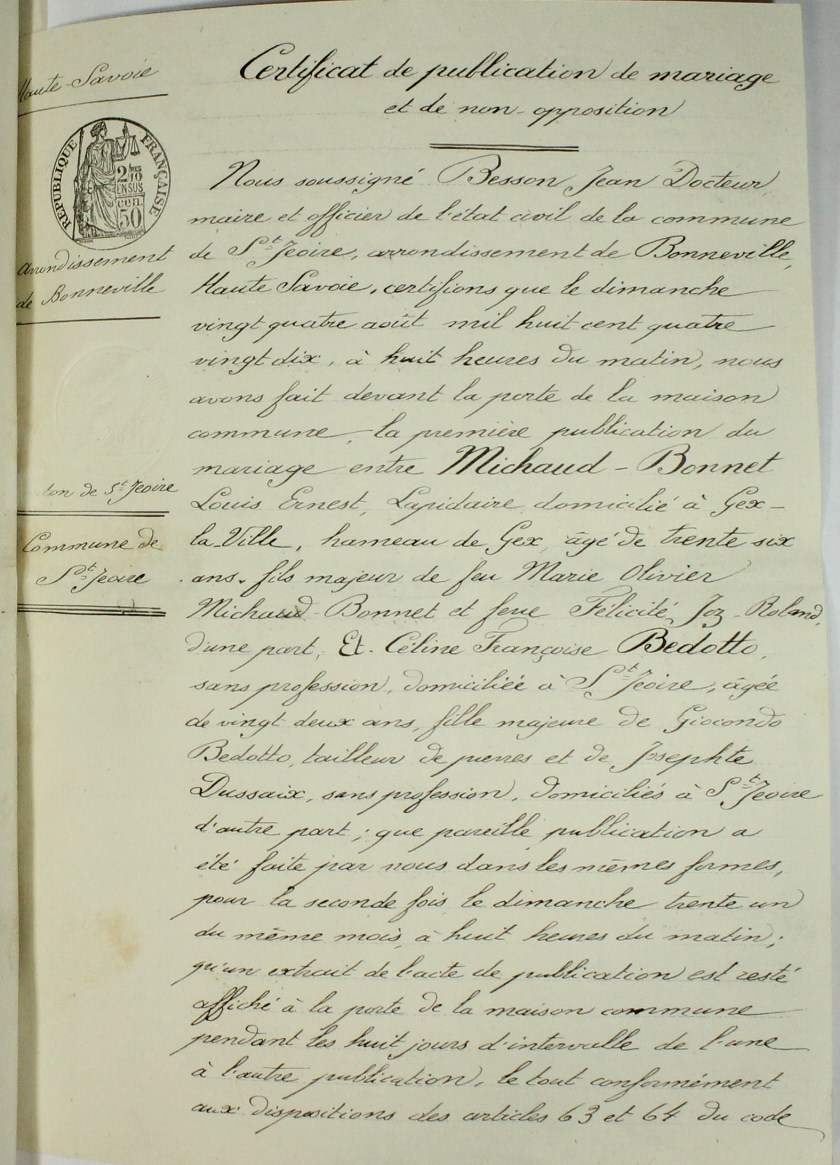 Haute-Savoie
RÉPUBLIQUE FRANÇAISE
2/10
EN SUS
50
arrondissement
de Bonneville
ton de St Jeoire
Commune de
St Jeoire
Certificat de publication de mariage
et de non-opposition
Nous soussigné Besson Jean Docteur
maire et officier de l'état civil de la commune
de St Jeoire, arrondissement de Bonneville,
Haute Savoie, certifions que le dimanche
vingt quatre août mil huit cent quatre
vingt dix, à huit heures du matin, nous
avons fait devant la porte de la maison
commune, la première publication du
mariage entre Michaud-Bonnet
Louis Ernest, Lapidaire, domicilié à Gex-
la-Ville, hameau de Gex, âgé de trente six
ans, fils majeur de feu Marie Olivier
Michaud-Bonnet et feue Félicité Joz-Roland,
d'une part, Et. Céline Françoise Bedotto,
sans profession, domiciliée à St Jeoire, âgée
de vingt deux ans, fille majeure de Giocondo
Bedotto, tailleur de pierres et de Josephte
Dussaix, sans profession, domiciliés à St Jeoire
d'autre part; que pareille publication a
été faite par nous dans les mêmes formes,
pour la seconde fois le dimanche trente un
du même mois, à huit heures du matin;
qu'un extrait de l'acte de publication est resté
affiché à la porte de la maison commune
pendant les huit jours d'intervalle de l'une
à l'autre publication, le tout conformément
aux dispositions des articles 63 et 64 du code